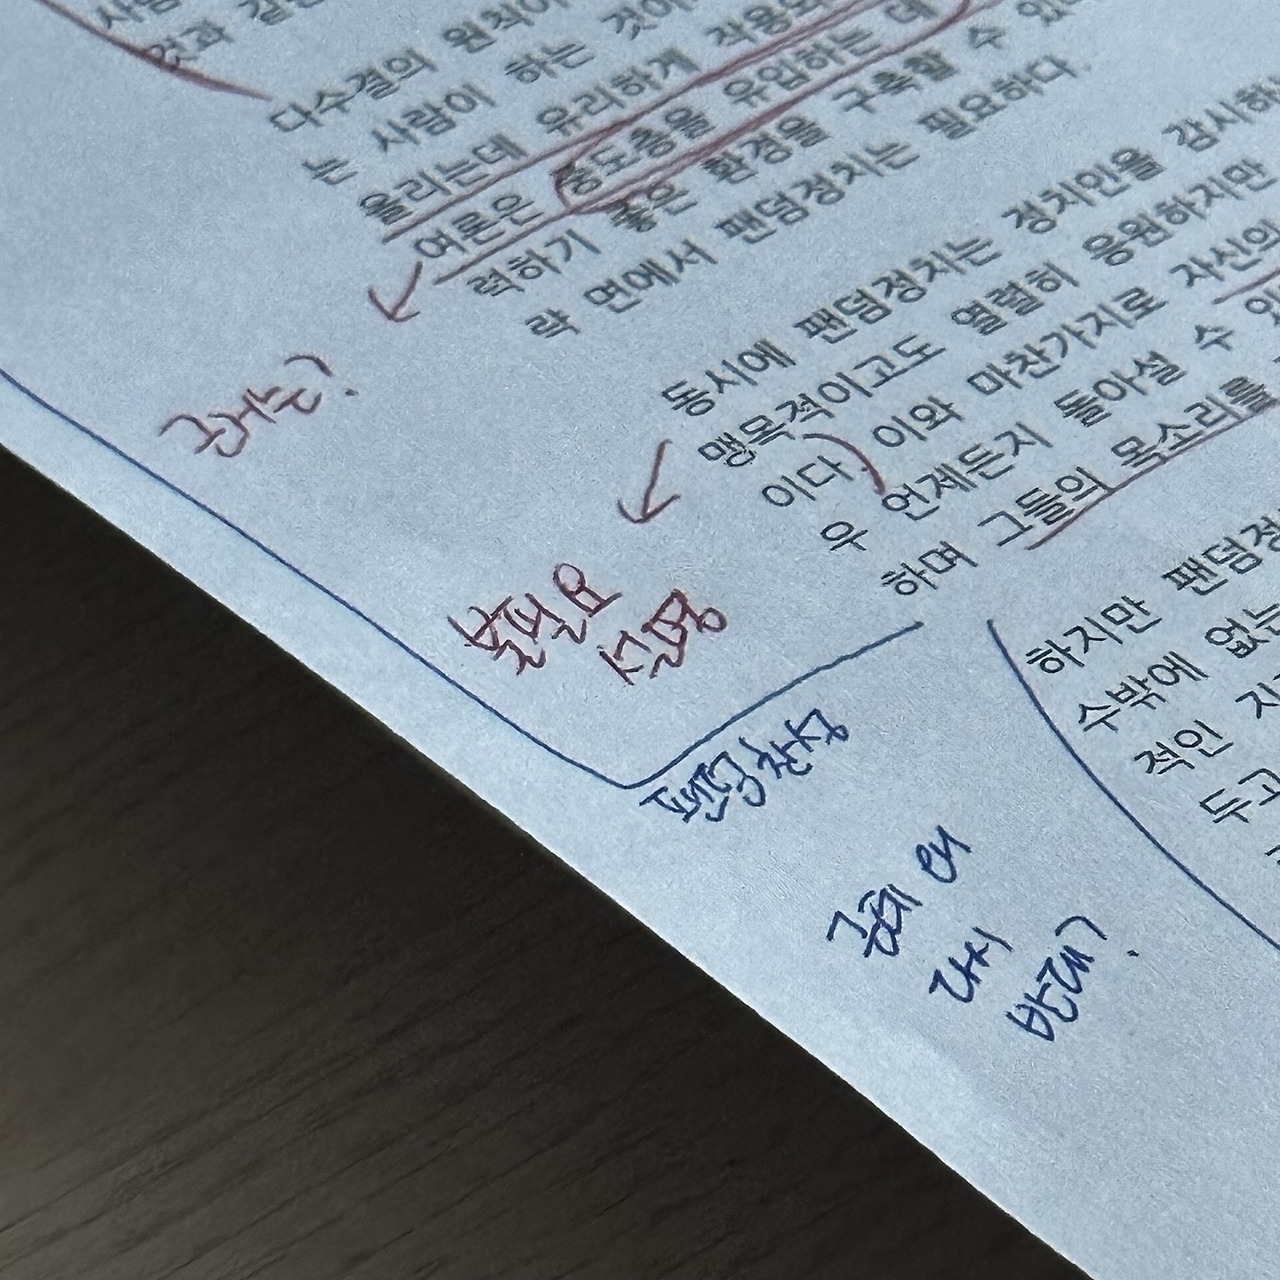 것과 같은
다수결의 원칙이
는 사람이 하는 것에
올리는데 유리하게 작용되
여론은 중도층을 유입하는 데
력하기 좋은 환경을 구축할 수 있
락 면에서 팬덤정치는 필요하다.
근거는?
동시에 팬덤정치는 정치인을 감시하
맹목적이고도 열렬히 응원하지만
이다. 이와 마찬가지로 자신의
우 언제든지 돌아설 수 있
하며 그들의 목소리를
불필요
설명
팬덤 찬성
하지만 팬덤정
수밖에 없는
적인 지
두고
근데 왜
다시
반대?